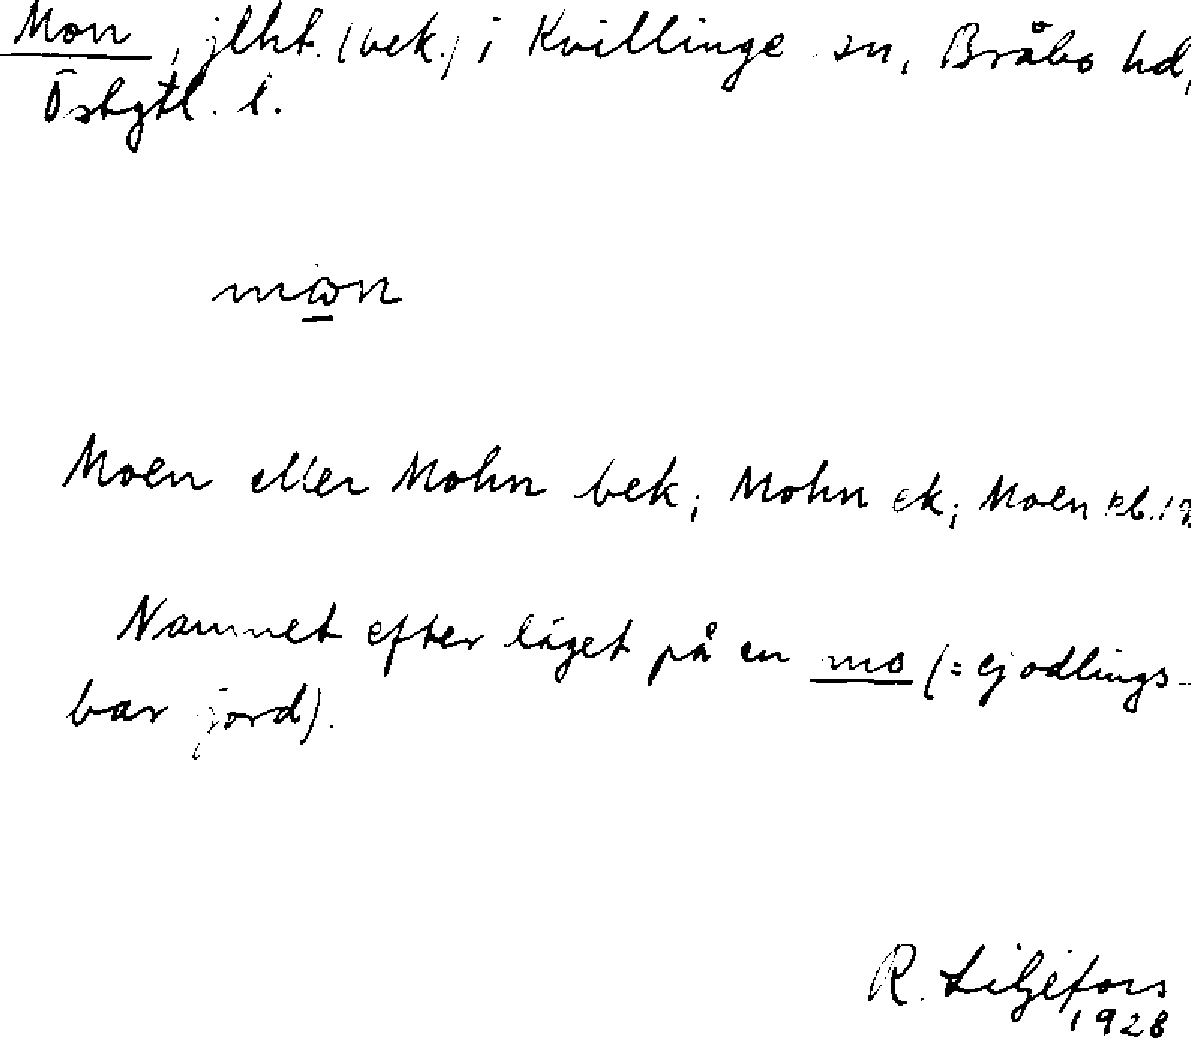 Mon, jlht. (bek.) i Kvillinge sn, Bråbo hd,
Östgtl. l.
mɷn
Moen eller Mohn bek; Mohn ek; Moen kb.
Namnet efter läget på en mo (= ej odlings-
bar jord).
R. Liljefors
1928